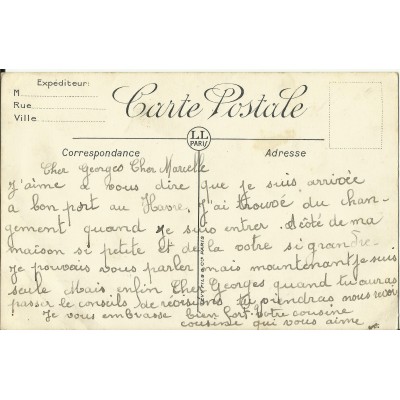 Expéditeur:
M
Rue
Ville
Carte Postale
LL
PARIS
Correspondance
Adresse
Cher Georges Cher Marcelle
J'aime a vous dire que je suis arrivée
a bon port au Havre, j'ai trouvé du chan-
gement quand je suis entrer. A côté de ma
maison si petite et de la votre si grande
je pouvais vous parler mais maintenant je suis
seule Mais enfin Cher Georges quand tu auras
passer le conseils de révisions tu prendras nous revoir
Je vous embrasse bien fort votre cousine
cousine qui vous aime